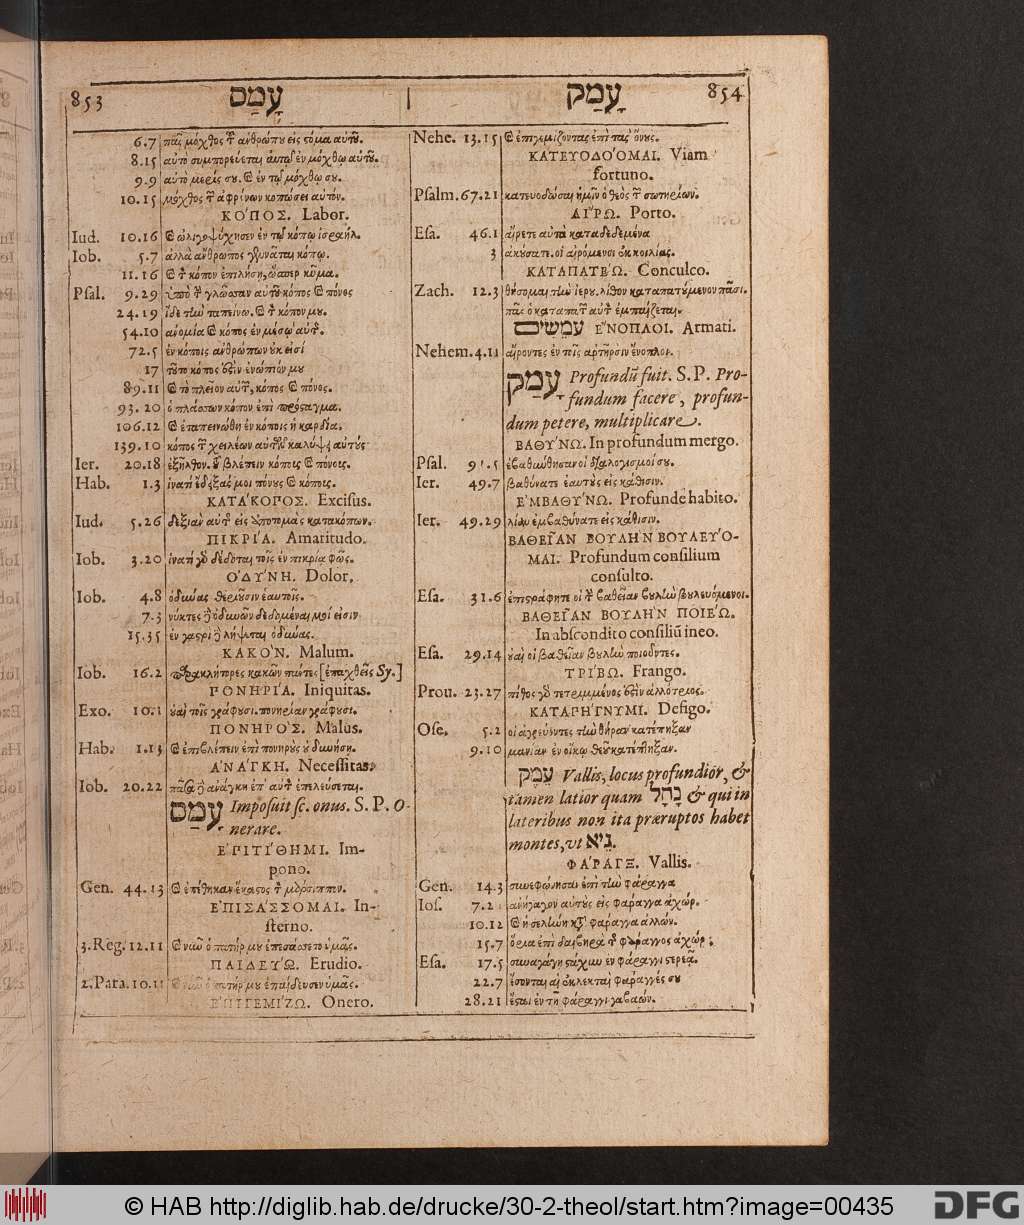 853 עָמַס
6.7 πᾶς μόχθος τοῦ ἀνθρώπου εἰς στόμα αὐτοῦ.
8.15 αὐτὸ συμπορεύεται αὐτῷ ἐν μόχθῳ αὐτοῦ.
9.9 αὐτὸ μερίς σου. καὶ ἐν τῷ μόχθῳ σου.
10.15 μόχθος τοῦ ἀφρίνων κοπώσει αὐτόν.
ΚΟΠΟΣ. Labor.
Iud. 10.16 καὶ ὠλιγοψύχησεν ἐν τῷ κόπῳ ἰσραήλ.
Iob. 5.7 ἀλλὰ ἄνθρωπος γεννᾶται κόπῳ.
11.16 καὶ τὸν κόπον ἐπιλήσῃ, ὥσπερ κῦμα.
Psal. 9.29 ὑπὸ τὴν γλῶσσαν αὐτοῦ κόπος καὶ πόνος
24.19 ἴδε τὴν ταπείνω. καὶ τὸν κόπον μου.
54.10 ἀνομία καὶ κόπος ἐν μέσῳ αὐτῆς.
72.5 ἐν κόποις ἀνθρώπων οὐκ εἰσί
17 τοῦτο κόπος ἐστὶν ἐνώπιόν μου
89.11 καὶ τὸ πλεῖον αὐτῶν, κόπος καὶ πόνος.
93.20 ὁ πλάσσων κόπον ἐπὶ πρόσταγμα.
106.12 καὶ ἐταπεινώθη ἐν κόποις ἡ καρδία.
139.10 κόπος τῶν χειλέων αὐτῶν καλύψει αὐτούς
Ier. 20.18 ἐξῆλθον. τοῦ βλέπειν κόποις καὶ πόνοις.
Hab. 1.3 ἱνατί ἔδειξάς μοι πόνους καὶ κόποις.
ΚΑΤΑΚΟΡΟΣ. Excisus.
Iud. 5.26 δεξιὰν αὐτῆς εἰς ὑποτομὰς κατακόπων.
ΠΙΚΡΙΑ. Amaritudo.
Iob. 3.20 ἱνατί γὰρ δέδοται τοῖς ἐν πικρίᾳ φῶς.
ὈΔΥΝΗ. Dolor.
Iob. 4.8 ὀδύνας θεριοῦσιν ἑαυτοῖς.
7.3 νύκτες δὲ ὀδυνῶν δεδομέναι μοί εἰσιν
15.35 ἐν γαστρὶ δὲ λήψεται ὀδύνας.
ΚΑΚΟΝ. Malum.
Iob. 16.2 παρακλήτορες κακῶν πάντες [ἐπαχθεῖς Sy.]
ΠΟΝΗΡΙΑ. Iniquitas.
Exo. 10.1 οὐαὶ τοῖς γράφουσι. πονηρίαν γράφουσι.
ΠΟΝΗΡΟΣ. Malus.
Hab. 1.13 καὶ ἐπιβλέπειν ἐπὶ πονηροὺς οὐ δυνήσῃ.
ἈΝΑΓΚΗ. Necessitas.
Iob. 20.22 πᾶσα δὲ ἀνάγκη ἐπ' αὐτὸν ἐπελεύσεται.
עָמַס Imposuit sc. onus. S. P. O-
nerare.
ΕΠΙΤΙΘΗΜΙ. Im-
pono.
Gen. 44.13 καὶ ἐπέθηκαν ἕκαστος τὸν μάρσιππον.
ΕΠΙΣΑΣΣΟΜΑΙ. In-
sterno.
3.Reg. 12.11 καὶ νῦν ὁ πατήρ μου ἐπεσάσσετο ὑμᾶς.
ΠΑΙΔΕΥΩ. Erudio.
2.Para. 10.11 καὶ νῦν ὁ πατήρ μου ἐπαίδευσεν ὑμᾶς.
ΕΠΙΓΕΜΙΖΩ. Onero.
עָמַק 854
Nehe. 13.15 καὶ ἐπιγεμίζοντας ἐπὶ τοὺς ὄνους.
ΚΑΤΕΥΟΔΟΟΜΑΙ. Viam
fortuno.
Psalm. 67.21 κατευοδώσει ἡμῖν ὁ θεὸς τῶν σωτηρίων.
ΑΙΡΩ. Porto.
Esa. 46.1 αἴρετε αὐτὰ καταδεδεμένα
3 ἀκούσατε. οἱ αἰρόμενοι ἐκ κοιλίας.
ΚΑΤΑΠΑΤΕΩ. Conculco.
Zach. 12.3 θήσομαι τὴν ἱερου. λίθον καταπατούμενον πᾶσι.
πᾶς ὁ καταπατῶν αὐτὴν ἐμπαίζεται.
עֹמְשִׂים ΕΝΟΠΛΟΙ. Armati.
Nehem. 4.11 αἴροντες ἐν τοῖς ἀρτῆρσιν ἔνοπλοι.
עָמַק Profundũ fuit. S. P. Pro-
fundum facere, profun-
dum petere, multiplicare.
ΒΑΘΥΝΩ. In profundum mergo.
Psal. 91.5 ἐβαθύνθησαν οἱ διαλογισμοί σου.
Ier. 49.7 βαθύνατε ἑαυτοὺς εἰς κάθισιν.
ΕΜΒΑΘΥΝΩ. Profundè habito.
Ier. 49.29 λίαν ἐμβαθύνατε εἰς κάθισιν.
ΒΑΘΕΙΑΝ ΒΟΥΛΗΝ ΒΟΥΛΕΥΟ-
ΜΑΙ. Profundum consilium
consulto.
Esa. 31.6 ἐπιστράφητε οἱ τὴν βαθεῖαν βουλὴν βουλευόμενοι.
ΒΑΘΕΙΑΝ ΒΟΥΛΗΝ ΠΟΙΕΩ.
In abscondito consiliũ ineo.
Esa. 29.14 οὐαὶ οἱ βαθεῖαν βουλὴν ποιοῦντες.
ΤΡΙΒΩ. Frango.
Prou. 23.27 πίθος γὰρ τετριμμένος ἐστὶν ἀλλότριος.
ΚΑΤΑΠΗΓΝΥΜΙ. Defigo.
Ose. 5.2 οἱ ἀγρεύοντες τὴν θήραν κατέπηξαν
9.10 μανίαν ἐν οἴκῳ θεοῦ κατέπηξαν.
עֵמֶק Vallis, locus profundior, &
tamen latior quam נַחַל & qui in
lateribus non ita præruptos habet
montes, vt גַּיְא.
ΦΑΡΑΓΞ. Vallis.
Gen. 14.3 συνεφώνησαν ἐπὶ τὴν φάραγγα
Ios. 7.2 ἀνήγαγον αὐτοὺς εἰς φάραγγα ἀχώρ.
10.12 καὶ ἡ σελήνη κατὰ φάραγγα αἰλών.
15.7 ὅρια ἐπὶ δαβηρὰ τῆς φάραγγος ἀχώρ.
Esa. 17.5 συναγάγῃ στάχυν ἐν φάραγγι στερεᾷ.
22.7 ἔσονται αἱ ἐκλεκταὶ φάραγγές σου
28.21 ἔσται ἐν τῇ φάραγγι γαβαών.
© HAB http://diglib.hab.de/drucke/30-2-theol/start.htm?image=00435
DFG